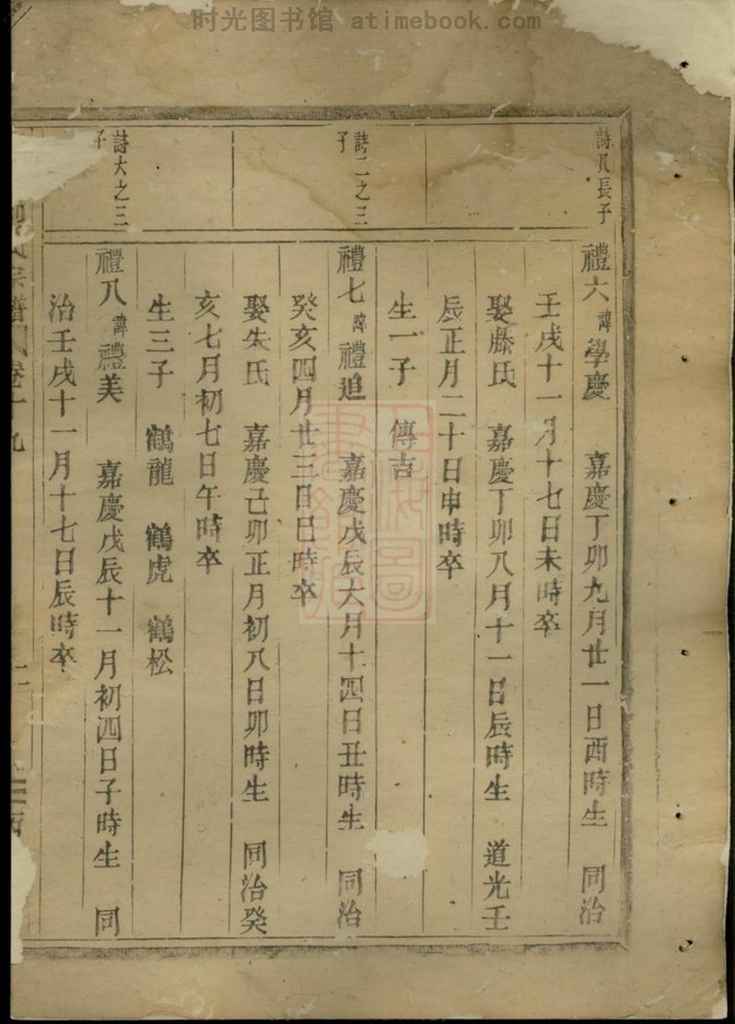 时光图书馆 atimebook.com
詩八長子
禮六 諱學慶 嘉慶丁卯九月廿一日酉時生 同治
壬戌十一月十七日未時卒
娶滕氏 嘉慶丁卯八月十一日辰時生 道光壬
辰正月二十日申時卒
生一子 傳吉
詩二之三
子
禮七 諱禮追 嘉慶戊辰六月十四日丑時生 同治
癸亥四月廿三日巳時卒
娶朱氏 嘉慶己卯正月初八日卯時生 同治癸
亥七月初七日午時卒
生三子 鶴龍 鶴虎 鶴松
詩六之三
子
禮八 諱禮美 嘉慶戊辰十一月初四日子時生 同
治壬戌十一月十七日辰時卒
氏宗譜 卷十九